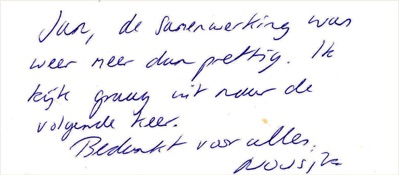 Jan, de samenwerking was
weer meer dan prettig. Ik
kijk graag uit naar de
volgende keer.
Bedankt voor alles,